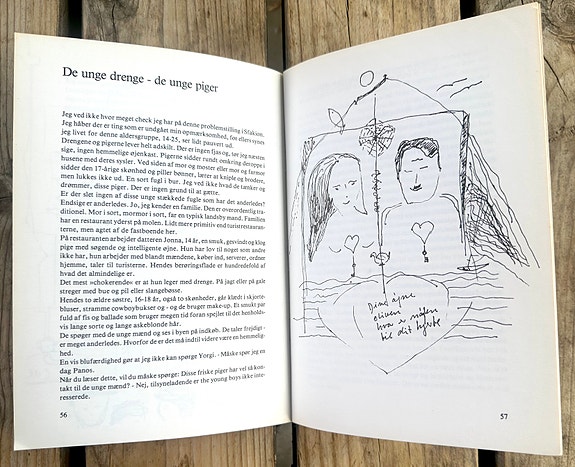 De unge drenge - de unge piger
Jeg ved ikke hvor meget check jeg har på denne problemstilling i Sfakion.
Jeg håber der er ting som er undgået min opmærksomhed, for ellers synes
jeg livet for denne aldersgruppe, 14-25, ser lidt pauvert ud.
Drengene og pigerne lever helt adskilt. Der er ingen fjas og, tør jeg næsten
sige, ingen hemmelige øjenkast. Pigerne sidder rundt omkring deroppe i
husene med deres sysler. Ved siden af mor og moster eller mor og farmor
sidder den 17-årige skønhed og piller bønner, lærer at kniple og brodere,
men lukkes ikke ud. En sort fugl i bur. Jeg ved ikke hvad de tænker og
drømmer, disse piger. Der er ingen grund til at gætte.
Er der slet ingen af disse unge stækkede fugle som har det anderledes?
Endsige er anderledes. Jo, jeg kender en familie. Den er overordentlig tra-
ditionel. Mor i sort, mormor i sort, far en typisk landsby mand. Familien
har en restaurant yderst på molen. Lidt mere primitiv end turistrestauran-
terne, men agtet af de fastboende her.
På restauranten arbejder datteren Jonna, 14 år, en smuk, gesvindt og klog
pige med søgende og intelligente øjne. Hun har lov til noget som andre
ikke har, hun arbejder med blandt mændene, køber ind, serverer, ordner
hjemme, taler til turisterne. Hendes berøringsflade er hundredefold af
hvad det almindelige er.
Det mest »chokerende« er at hun leger med drenge. På jagt eller på gale
streger med bue og pil eller slangebøsse.
Hendes to ældre søstre, 16-18 år, også to skønheder, går klædt i skjorte-
bluser, stramme cowboybukser og - og de bruger make-up. Et smukt par
fuld af fis og ballade som bruger megen tid foran spejlet til det henholds-
vis lange sorte og lange askeblonde hår.
De spøger med de unge mænd og ses i byen på indkøb. De taler frejdigt -
er meget anderledes. Hvorfor de er det må indtil videre være en hemmelig-
hed.
En vis blufærdighed gør at jeg ikke kan spørge Yorgi. - Måske spør jeg en
dag Panos.
Når du læser dette, vil du måske spørge: Disse friske piger har vel så kon-
takt til de unge mænd? - Nej, tilsyneladende er the young boys ikke inte-
resserede.
56
Dine øjne
oliven
hva er nøglen
til dit hjerte
57